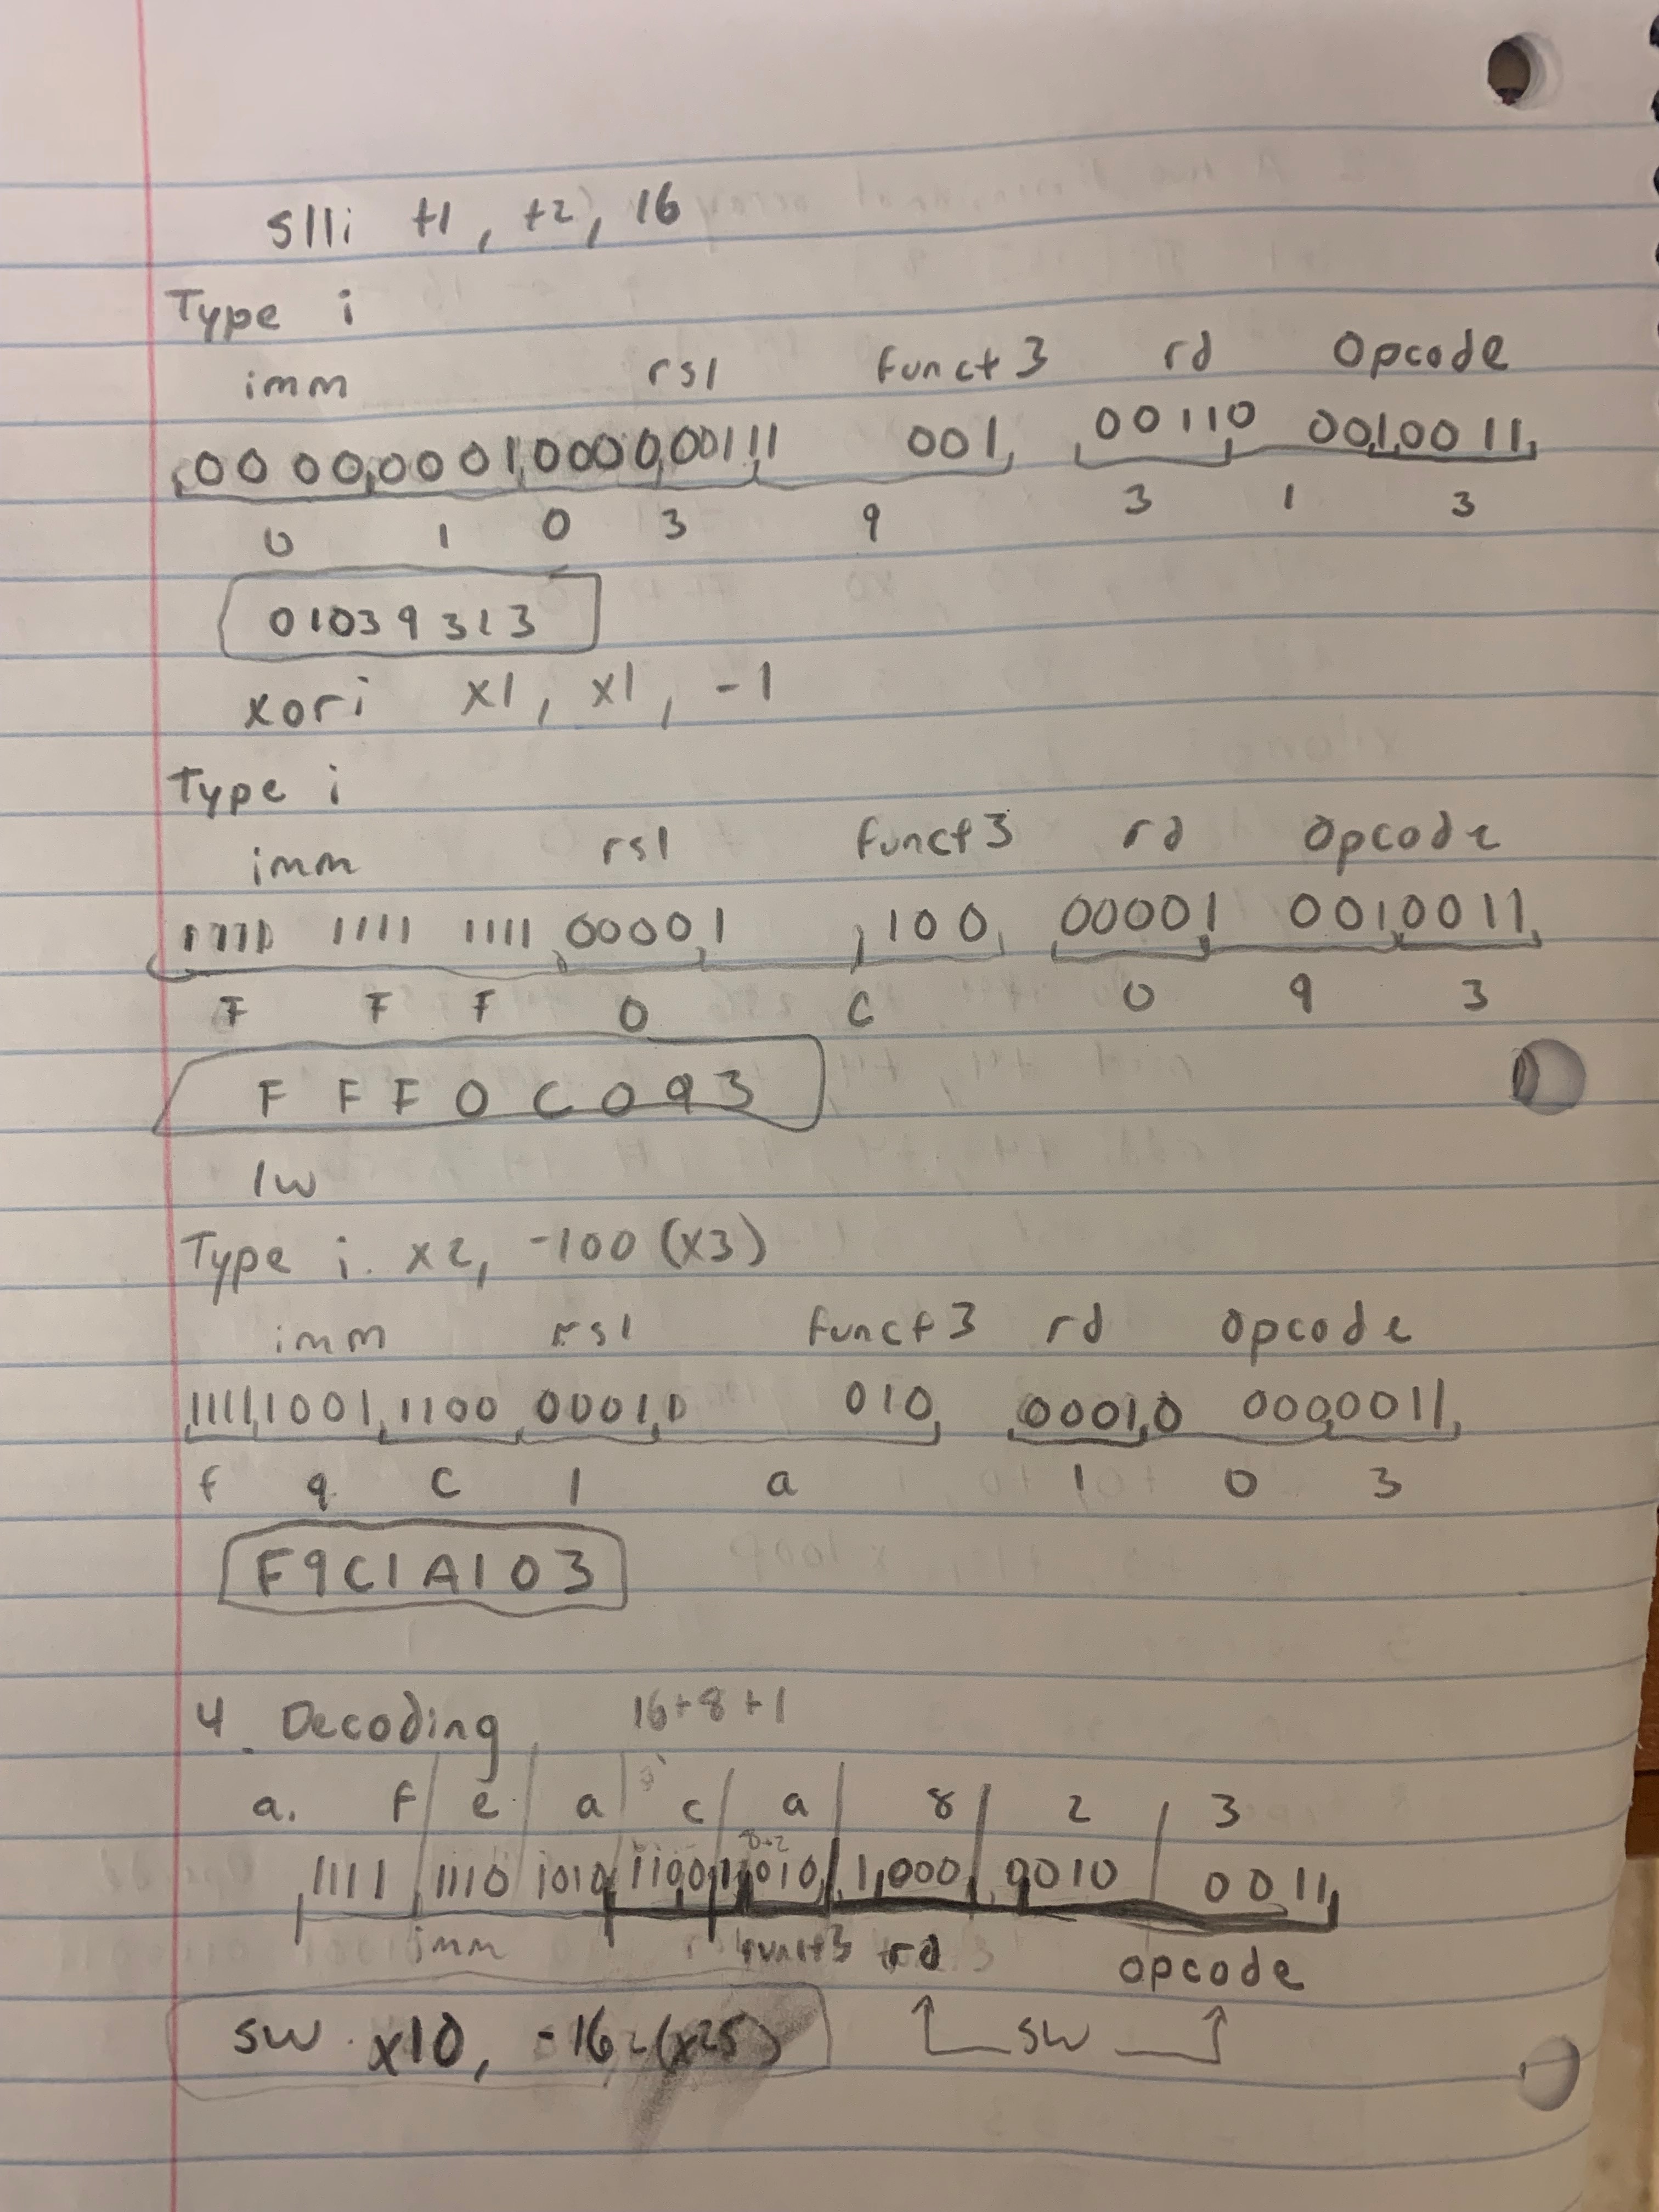 slli t1, t2, 16
Type i
imm rs1 funct3 rd opcode
0000 0001 0000 00111 001 00110 0010011
0 1 0 3 9 3 1 3
01039313
xori x1, x1, -1
Type i
imm rs1 funct3 rd opcode
1111 1111 1111 00001 100 00001 0010011
F F F 0 C 0 9 3
F F F 0 C 0 9 3
lw
Type i. x2, -100(x3)
imm rs1 funct3 rd opcode
1111 1001 1100 00010 010 00010 0000011
f 9 c 1 a 1 0 3
F9C1A103
4. Decoding 16+8+1
a. f e a c a 8 2 3
8+2
1111 1110 1010 1100 1010 1000 0010 0011
imm funct3 rd opcode
sw x10, -16 (x25) sw